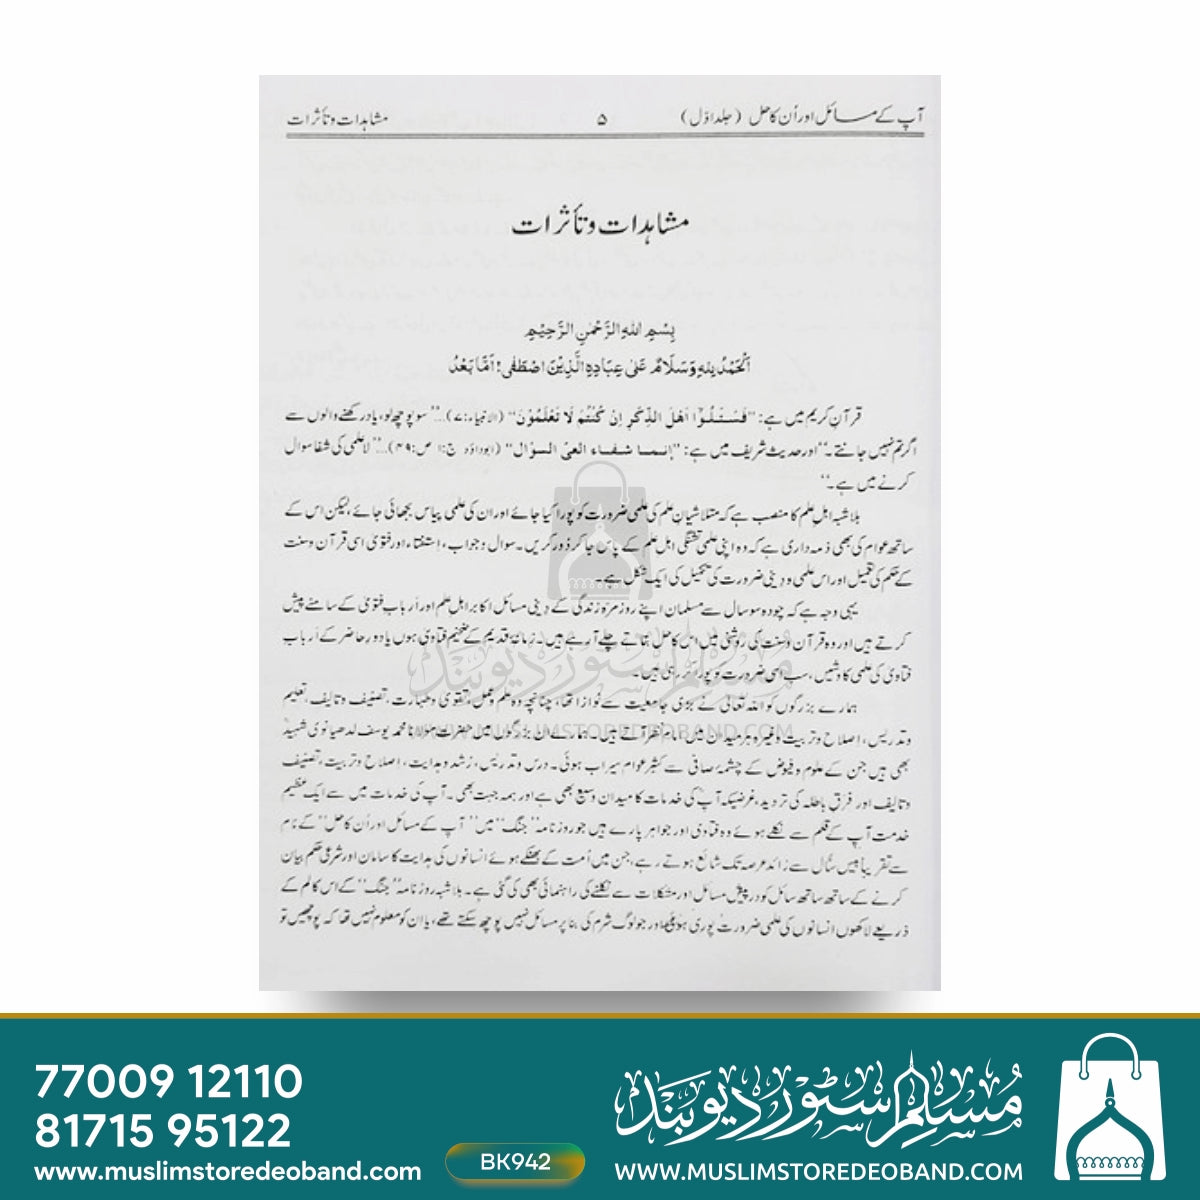 آپ کے مسائل اور اُن کا حل (جلد اوّل) ۵ مشاہدات و تأثرات
مشاہدات و تأثرات
بِسْمِ اللهِ الرَّحْمٰنِ الرَّحِيْمِ
اَلْحَمْدُ لِلّٰهِ وَسَلَامٌ عَلٰى عِبَادِهِ الَّذِيْنَ اصْطَفٰى! اَمَّا بَعْدُ
قرآنِ کریم میں ہے: "فَسْئَلُوْٓا اَهْلَ الذِّكْرِ اِنْ كُنْتُمْ لَا تَعْلَمُوْنَ" (الانبیاء:۷)...‘‘سو پوچھ لو، یاد رکھنے والوں سے
اگر تم نہیں جانتے۔’’ اور حدیث شریف میں ہے: "إنما شفاء العيّ السوال" (ابوداؤد ج:۱ ص:۴۹)...‘‘لاعلمی کی شفا سوال
کرنے میں ہے۔’’
بلاشبہ اہلِ علم کا منصب ہے کہ متلاشیانِ علم کی علمی ضرورت کو پورا کیا جائے اور ان کی علمی پیاس بجھائی جائے، لیکن اس کے
ساتھ عوام کی بھی ذمہ داری ہے کہ وہ اپنی علمی تشنگی اہلِ علم کے پاس جا کر دُور کریں۔ سوال و جواب، اِستفتاء اور فتویٰ اسی قرآن و سنت
کے حکم کی تعمیل اور اس علمی و دینی ضرورت کی تکمیل کی ایک شکل ہے۔
یہی وجہ ہے کہ چودہ سو سال سے مسلمان اپنے روزمرّہ زندگی کے دِینی مسائل اکابر اہلِ علم اور اَربابِ فتویٰ کے سامنے پیش
کرتے ہیں اور وہ قرآن و سنت کی روشنی میں اس کا حل بتاتے چلے آ رہے ہیں۔ زمانۂ قدیم کے ضخیم فتاویٰ ہوں یا دورِ حاضر کے اَربابِ
فتاویٰ کی علمی کاوشیں، سب اسی ضرورت کو پورا کر رہی ہیں۔
ہمارے بزرگوں کو اللہ تعالیٰ نے بڑی جامعیت سے نوازا تھا، چنانچہ وہ علم و عمل، تقویٰ و طہارت، تصنیف و تالیف، تعلیم
وتدریس، اِصلاح و تربیت وغیرہ ہر میدان میں امام نظر آتے ہیں۔ ہمارے ان بزرگوں میں حضرت مولانا محمد یوسف لدھیانوی شہیدؒ
بھی ہیں جن کے علوم و فیوض کے چشمۂ صافی سے کثیر عوام سیراب ہوئی۔ درس و تدریس، رُشد و ہدایت، اِصلاح و تربیت، تصنیف
و تالیف اور فرقِ باطلہ کی تردید، غرضیکہ آپؒ کی خدمات کا میدان وسیع بھی ہے اور ہمہ جہت بھی۔ آپ کی خدمات میں سے ایک عظیم
خدمت آپ کے قلم سے نکلے ہوئے وہ فتاویٰ اور جواہر پارے ہیں جو روزنامہ ‘‘جنگ’’ میں ‘‘آپ کے مسائل اور اُن کا حل’’ کے نام
سے تقریباً بیس سال سے زائد عرصہ تک شائع ہوتے رہے، جن میں اُمت کے بھٹکے ہوئے انسانوں کی ہدایت کا سامان اور شرعی حکم بیان
کرنے کے ساتھ ساتھ سائل کو درپیش مسائل اور مشکلات سے نکلنے کی راہنمائی بھی کی گئی ہے۔ بلاشبہ روزنامہ ‘‘جنگ’’ کے اس کالم کے
ذریعے لاکھوں انسانوں کی علمی ضرورت پوری ہو اور جو لوگ شرم کی بنا پر مسائل نہیں پوچھ سکتے تھے، یا ان کو معلوم نہیں تھا کہ پوچھیں تو
مسلم سٹور دیوبند
WWW.MUSLIMSTOREDEOBAND.COM
77009 12110
81715 95122
www.muslimstoredeoband.com
BK942
مسلم سٹور دیوبند
WWW.MUSLIMSTOREDEOBAND.COM